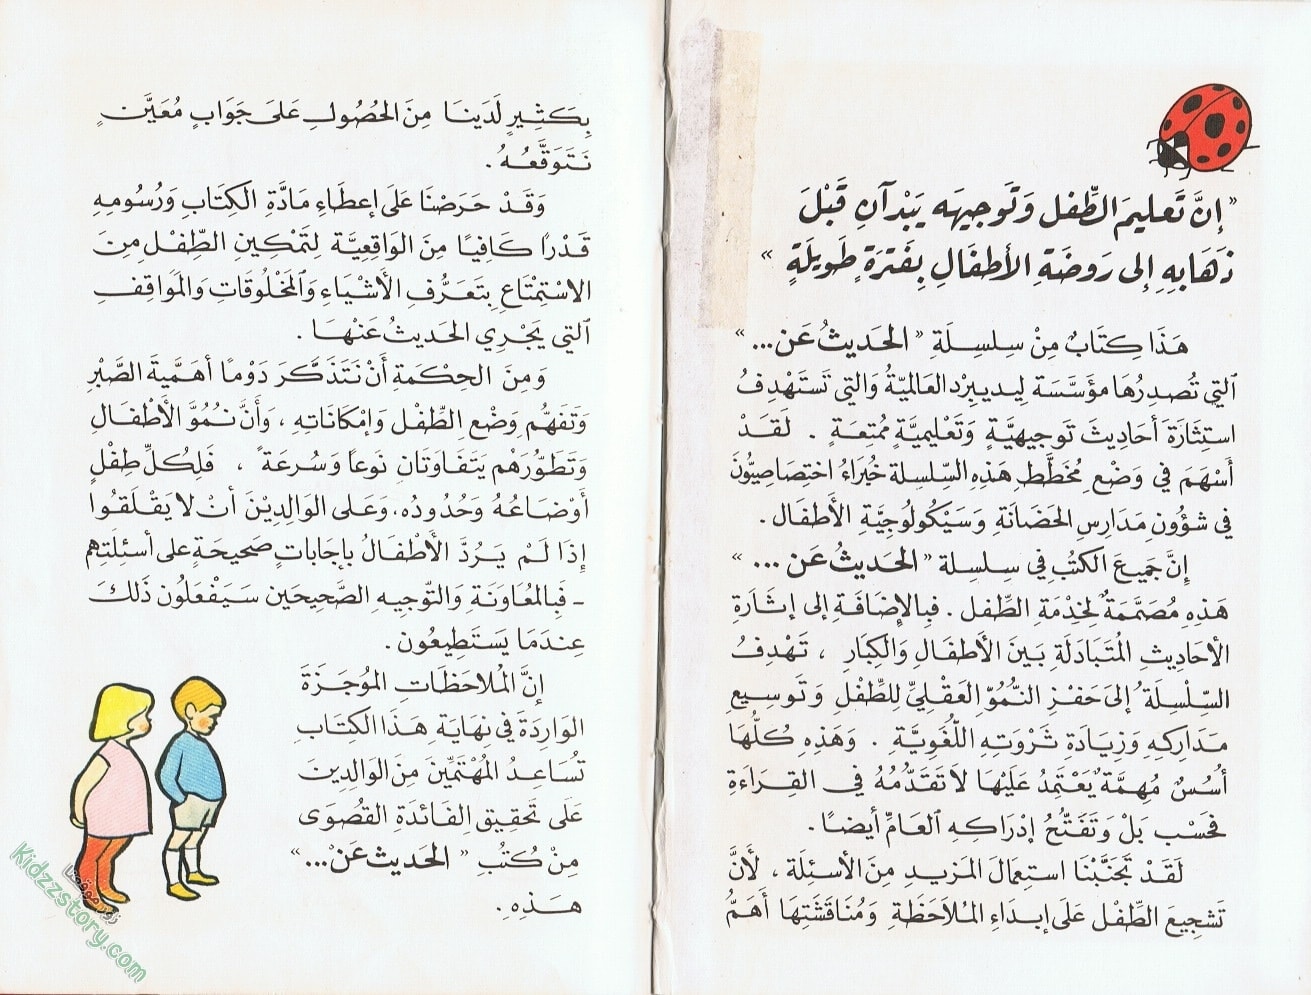 « إنَّ تَعليمَ الطِّفل وَتَوجيهَه يَبْدآنِ قَبْلَ
ذهَابِهِ إلى رَوضَةِ الأطفَالِ بِفَترَةٍ طَويلَةٍ »
هَذَا كِتَابٌ مِنْ سِلسِلَةِ « الحَديثُ عَن... »
ٱلتِي تُصدِرُهَا مؤسَّسَة ليديبِرد العَالميّةُ وَالتي تَستَهْدِفُ
استِثَارَةَ أحَاديثَ تَوجيهيَّةٍ وَتَعْليميَّةٍ مُمتعَةٍ . لَقَدْ
أسْهَمَ في وَضْعِ مُخَطَّطِ هَذِهِ السِّلسلة خُبَراءُ اختِصَاصيُّونَ
في شؤُونِ مَدَارسِ الحَضَانَةِ وَسَيْكُولُوجيَّةِ الأطفَال .
إنَّ جَميعَ الكتُبِ في سِلسِلة « الحَديثُ عَن ... »
هَذِهِ مُصَمَّمَةٌ لخِدْمَة الطِّفل . فبِالإضَافَةِ إلى إثَارَةِ
الأحَاديثِ المُتَبَادَلَةِ بَينَ الأطفَالِ وَالكِبَارِ ، تَهْدِفُ
السِّلْسِلَةُ إلىَ حَفْزِ النُّمُوِّ العَقْلِيِّ لِلطِّفْلِ وَتَوسيعِ
مَدَاركِهِ وَزيَادَةِ ثَرْوَتِهِ اللُّغَويَّةِ . وَهَذِهِ كُلُّهَا
أُسُسٌ مُهِمَّةٌ يَعْتَمِدُ عَلَيْهَا لاَ تَقَدُّمُهُ في القِرَاءَةِ
فَحَسْب بَلْ وَتَفَتُّحُ إدْرَاكِهِ العَامِّ أيضاً .
لَقَدْ تَجَنَّبْنَا استِعمَالَ المَزيدِ مِنَ الأسئِلَة ، لأَنَّ
تَشجيعَ الطِّفْل عَلىَ إبدَاءِ المُلاَحَظَةِ وَمُنَاقَشَتِهَا أهَمُّ
بِكَثِيرٍ لَدَينَا مِنَ الحُصُولِ عَلىَ جَوَابٍ مُعَيَّنٍ
نَتَوَقَّعُهُ .
وَقَدْ حَرَصْنَا عَلىَ إعطَاءِ مَادَّةِ الكِتَابِ وَرُسُومِهِ
قَدْرًا كَافيًا مِنَ الوَاقِعيَّة لِتَمْكِينِ الطِّفْلِ مِنَ
الاسْتِمْتَاعِ بِتَعَرُّفِ الأشْيَاءِ وَالمَخْلُوقَاتِ وَالمَوَاقِفِ
ٱلتي يَجْري الحَديثُ عَنْهَا .
وَمِنَ الحِكْمَةِ أنْ نَتَذَكَّرَ دَوْمًا أهَمِّيَةَ الصَّبْرِ
وَتَفَهُّمِ وَضْعِ الطِّفْل وَإمْكَانَاتِهِ ، وَأنَّ نُمُوَّ الأطْفَالِ
وَتَطَوُّرَهُم يَتَفَاوَتَان نَوعَاً وَسُرعَةً ، فَلِكُلِّ طِفْلٍ
أوْضَاعُهُ وَحُدُودُه، وَعَلى الوَالِدِيْنَ أنْ لا يَقْلَقُوا
إذَا لَمْ يَرُدَّ الأطْفَالُ بإجَاباتٍ صَحيحَةٍ على أسئِلَتِهِم
- فَبِالمُعَاوَنَةِ والتّوجيهِ الصَّحيحَين سَيَفْعَلُون ذَلكَ
عِندَمَا يَستَطِيعُون .
إنَّ المُلاحَظَاتِ المُوجَزَةَ
الوَارِدَةَ في نِهَايَةِ هَذَا الكِتَابِ
تُسَاعِدُ المُهْتَمِّينَ مِنَ الوَالِدِينَ
عَلَى تَحقيقِ الفَائدَةِ القُصْوَى
مِنْ كُتُبِ « الحَديث عَنْ... »
هَذِهِ.
زوروا موقعنا
Kidzzstory.com